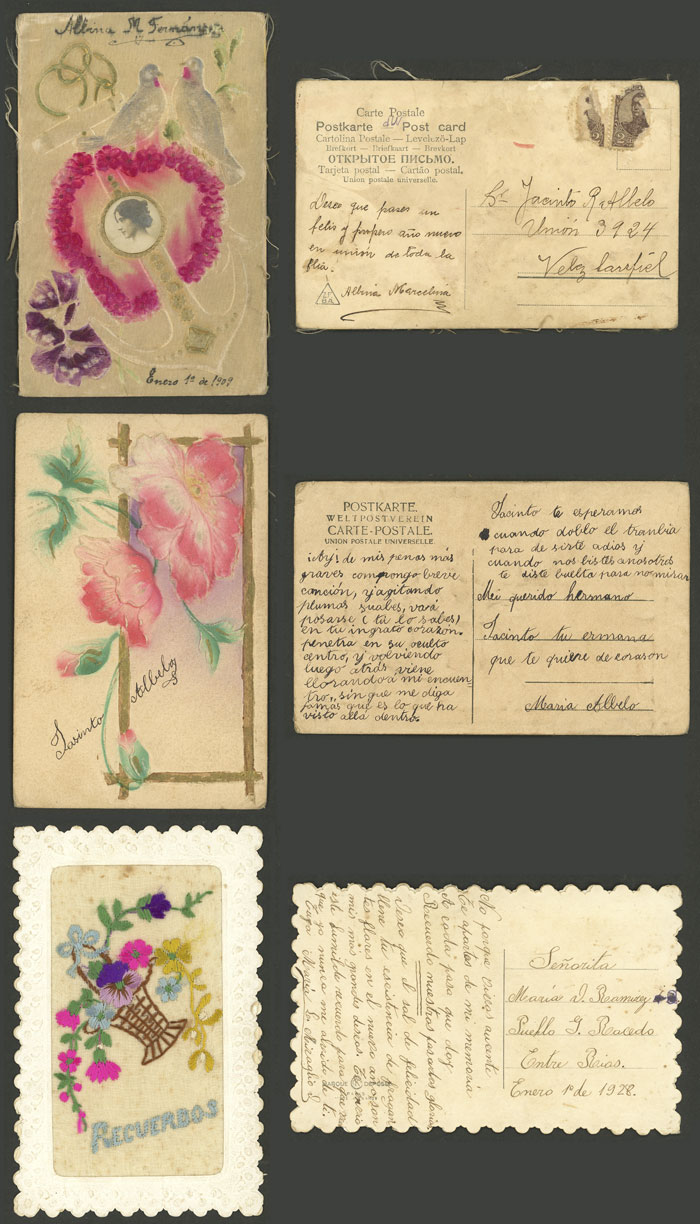 Albina M Fernández
Enero 1º de 1909
Carte Postale
Postkarte Post card
Cartolina Postale — Levelező-Lap
Brefkort — Briefkaart — Brevkort
ОТКРЫТОЕ ПИСЬМО.
Tarjeta postal — Cartão postal.
Union postale universelle.
Deseo que pases un
felis y prospero año nuevo
en unión de toda la
flia.
Albina Marcelina
2
2
Sr Jacinto R. Albelo
Unión 3924
Velez Sarsfiel
Jasinto Albelo
POSTKARTE.
WELTPOSTVEREIN
CARTE-POSTALE.
UNION POSTALE UNIVERSELLE
¡Ay! de mis penas más
graves compongo breve
canción, y agitando
plumas suabes, vará
posarse (tú lo sabes)
en tu ingrato corazón.
penetra en su oculto
centro, y volviendo
luego atrás viene
llorando á mi encuen-
tro, sin que me diga
jamas que es lo que ha
visto allá dentro.
Jacinto te esperamos
cuando doblo el tranbia
para de sirte adios y
cuando nos bistes anosotros
te diste buelta para no mirar
Mei querido hermano
Jacinto tu ermana
que te quiere de corason
Maria Albelo
RECUERDOS
No porque vueas ausente
Te apartas de mi memoria
A cada paso que doy
Recuerdo nuestras pasadas glorias
Deseo que el sol de felicidad
llene tu existencia de fragan
tes flores en el nuevo año son
mis más grandes deseos.
este humilde recuerdo para que
que yo nunca me olvido de ti.
Señorita
María D. Ramirez
Pueblo G. Racedo
Entre Rios.
Enero 1º de 1928.